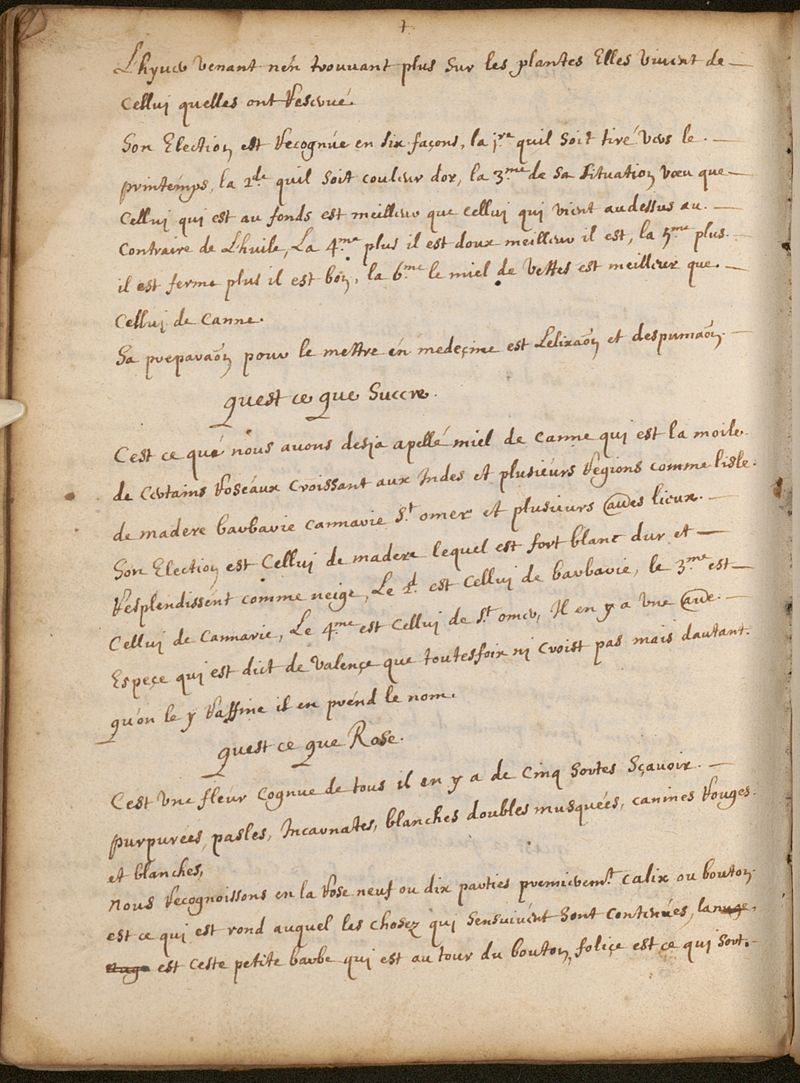 Lhyuer venant nen trouuant plus sur les plantes Elles viuent de
cellui quelles ont Rescoué.
Son Election est Recognúe en six façons, la jre quil soit tiré vers le
printemps, la 2de quil soit couleur dor, la 3me de sa situation voeu que
Cellui qui est au fonds est meilleur que cellui qui vient audessus au
Contraire de Lhuile, La 4me plus il est doux meilleur il est, la 5me plus
il est ferme plus il est bon, la 6me le miel de Vettes est meilleur que
Cellui de Canne.
Sa preparaōn pour le mettre en medeçine est Lelixaōn et despumaōn.
quest ce que Succre.
Cest ce que nous auons desja apellé miel de Canne qui est la moile
de Certains Roseaux Croissant aux Indes et plusieurs Regions comme lisle
de madere barbarie cannarie St omer et plusieurs aues lieux.
Son Election est Cellui de madere lequel est fort blanc dur et
Resplendissent comme neige, Le 2d. est Cellui de barbarie, le 3me est
Cellui de Cannarie, Le 4me est Cellui de St omer, Il en y a Vne aue
Espeçe qui est dict de Valençe que toutesfoix ni Croist pas mais dautant
qu'on le y Raffine il en prend le nom.
quest ce que Rose.
Cest Vne fleur Cognue de tous il en y a de Cinq Sortes Sçauoir
purpurees, pasles, Incarnates, blanches doubles musquées, canines Rouges
et blanches,
nous Recognoissons en la Rose neuf ou dix parties premieremt. calix ou bouton
est ce qui est rond auquel les chosez qui sensuiuent sont contenúes,
est ceste petite barbe qui est au tour du bouton, foliçe est ce qui sort